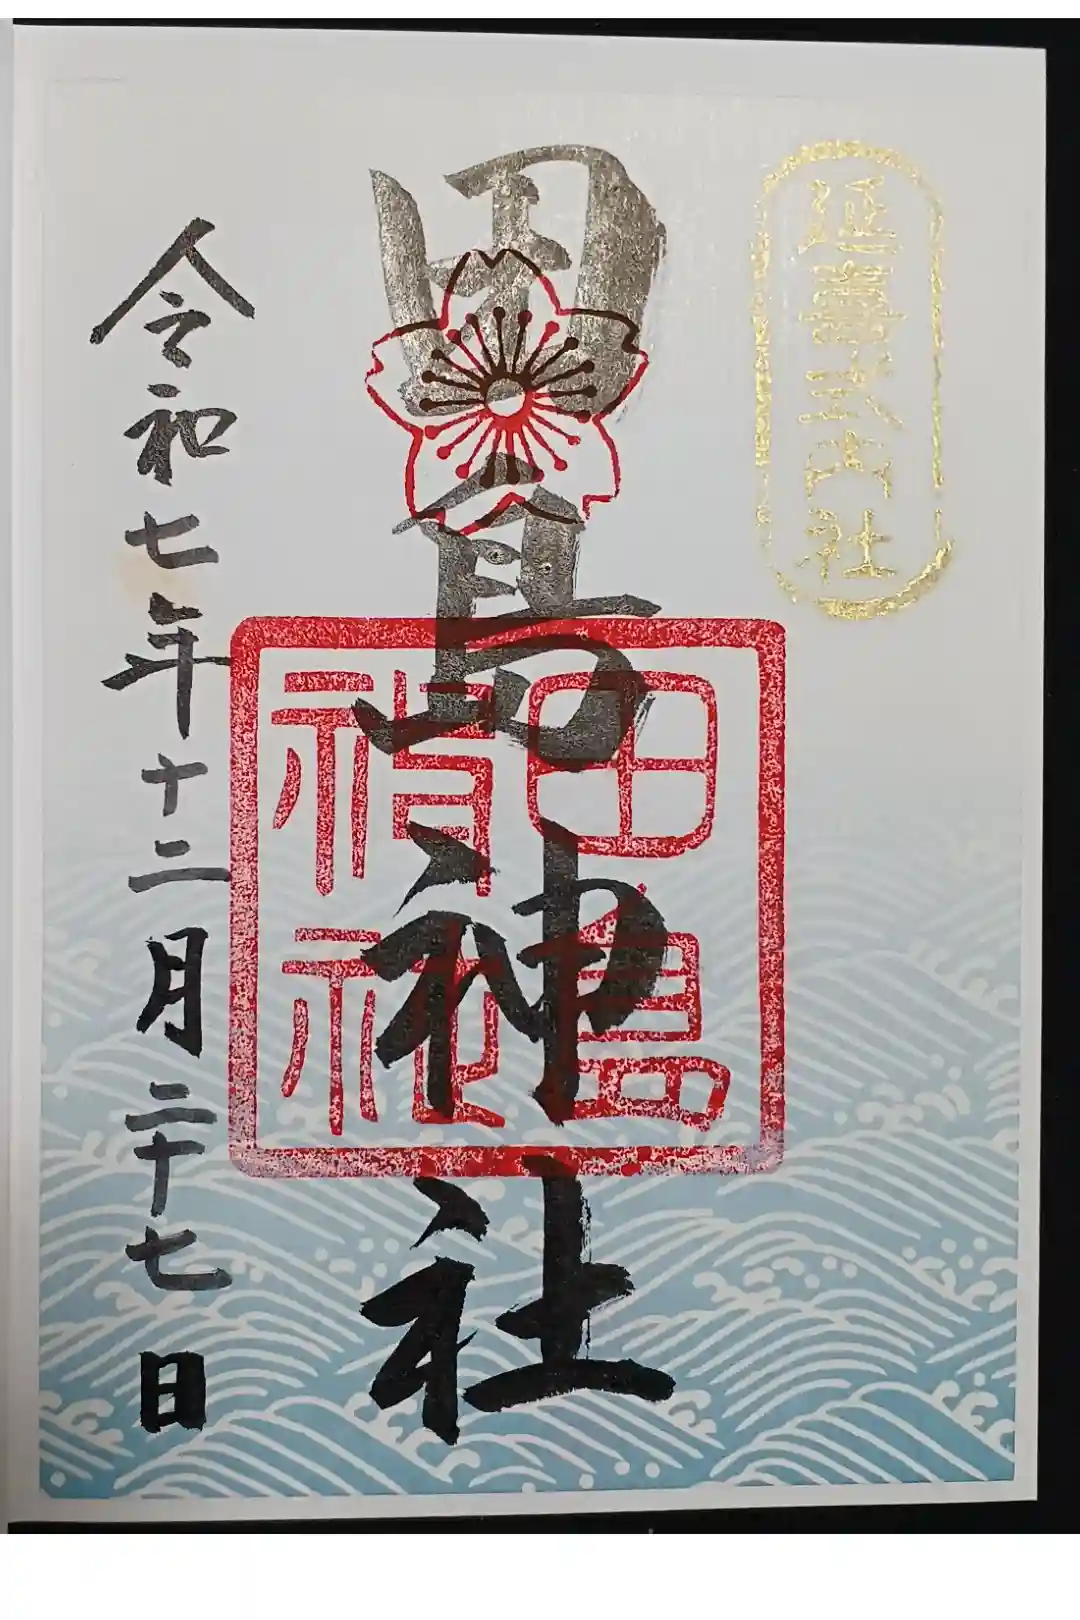 延喜式内社
田島神社
田島
神社
令和七年十二月二十七日